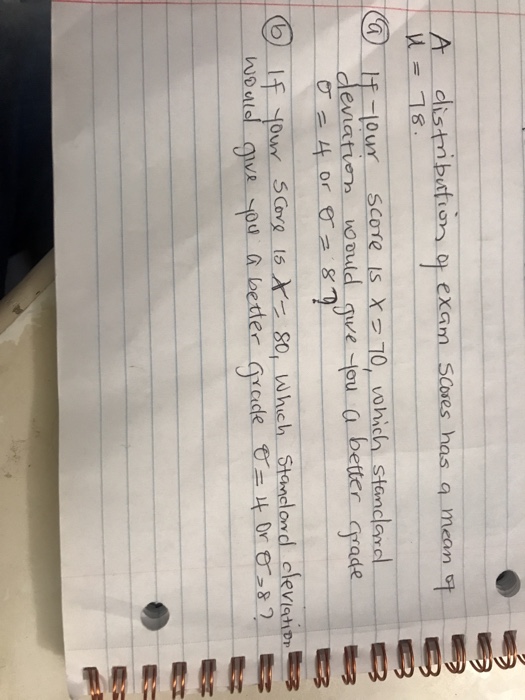 A distribution of exam scores has a mean of
μ = 78.
(a) If your score is x = 70, which standard
deviation would give you a better grade
σ = 4 or σ = 8?
(b) If your score is x = 80, which standard deviation
would give you a better grade σ = 4 or σ = 8?